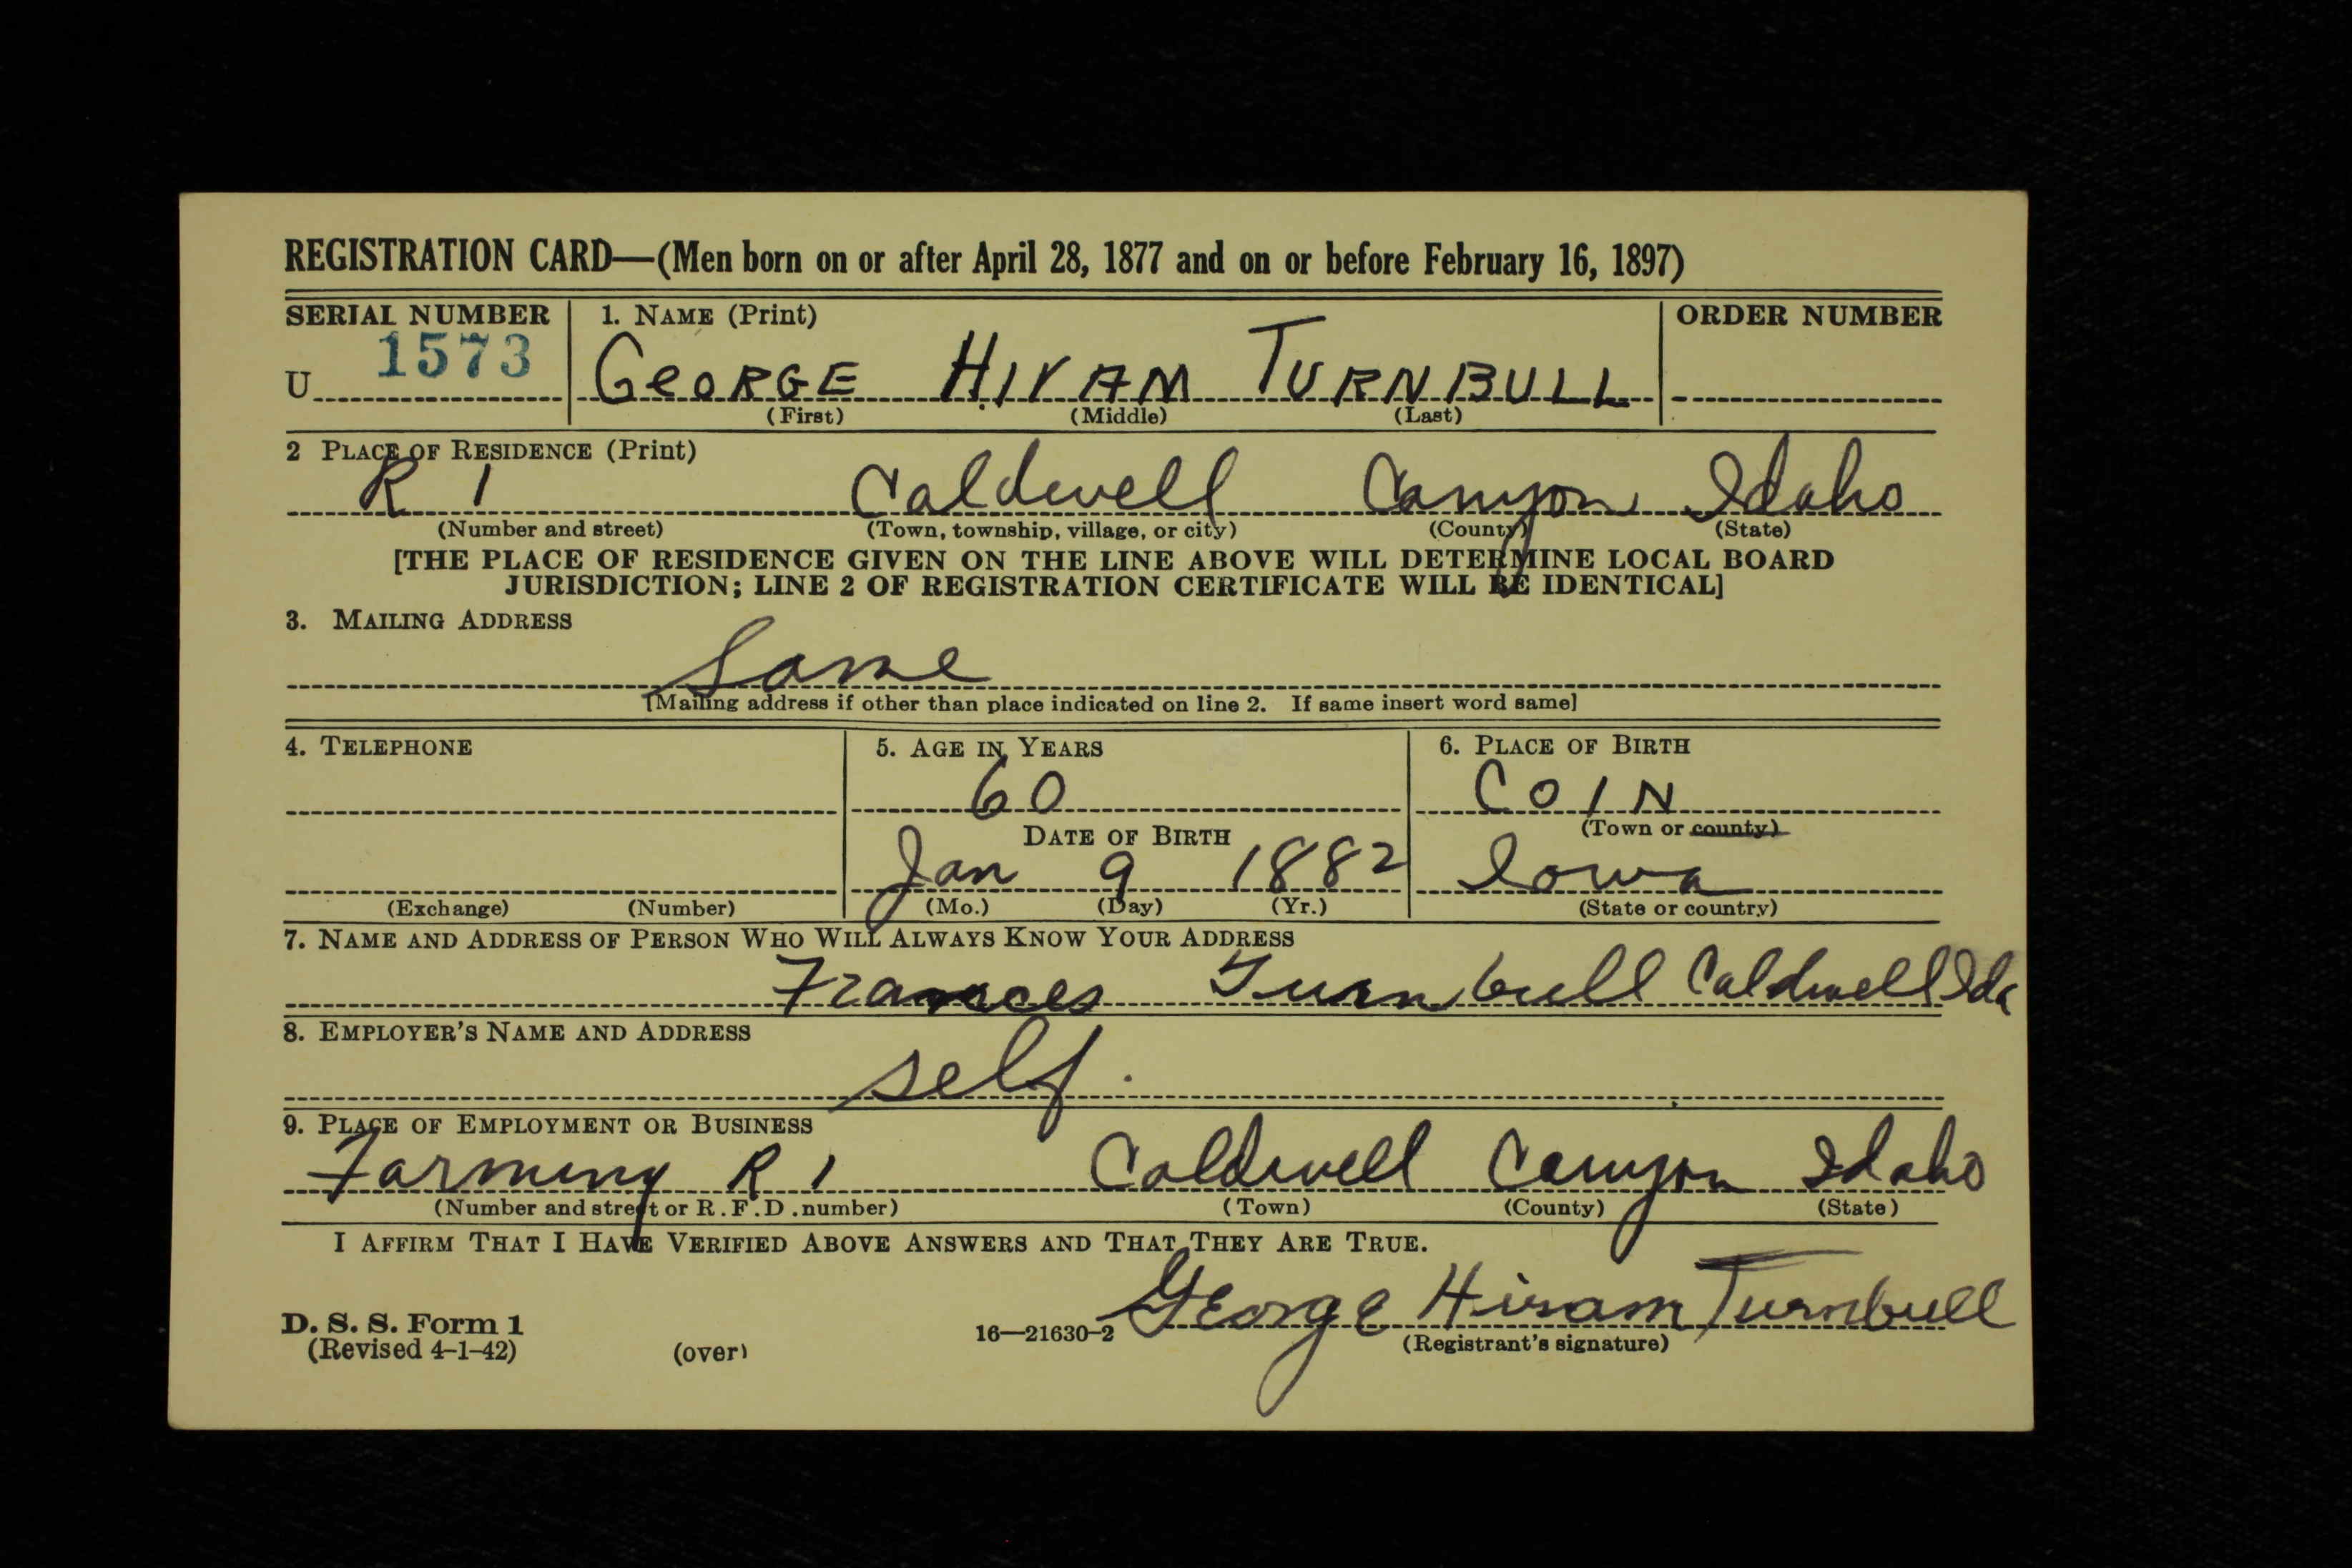 REGISTRATION CARD—(Men born on or after April 28, 1877 and on or before February 16, 1897)
SERIAL NUMBER 1. NAME (Print) ORDER NUMBER
U 1573 GEORGE HIRAM TURNBULL
(First) (Middle) (Last)
2 PLACE OF RESIDENCE (Print)
R 1 Caldwell Canyon Idaho
(Number and street) (Town, township, village, or city) (County) (State)
[THE PLACE OF RESIDENCE GIVEN ON THE LINE ABOVE WILL DETERMINE LOCAL BOARD
JURISDICTION; LINE 2 OF REGISTRATION CERTIFICATE WILL BE IDENTICAL]
3. MAILING ADDRESS
Same
[Mailing address if other than place indicated on line 2. If same insert word same]
4. TELEPHONE 5. AGE IN YEARS 6. PLACE OF BIRTH
60 COIN
DATE OF BIRTH (Town or county)
Jan 9 1882 Iowa
(Exchange) (Number) (Mo.) (Day) (Yr.) (State or country)
7. NAME AND ADDRESS OF PERSON WHO WILL ALWAYS KNOW YOUR ADDRESS
Frances Turnbull Caldwell Ida
8. EMPLOYER'S NAME AND ADDRESS
self.
9. PLACE OF EMPLOYMENT OR BUSINESS
Farming R 1 Caldwell Canyon Idaho
(Number and street or R.F.D. number) (Town) (County) (State)
I AFFIRM THAT I HAVE VERIFIED ABOVE ANSWERS AND THAT THEY ARE TRUE.
George Hiram Turnbull
D. S. S. Form 1 16—21630-2 (Registrant's signature)
(Revised 4-1-42) (over)